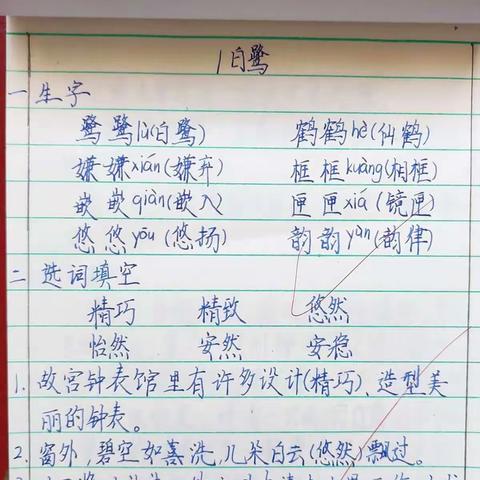 1白鹭
一生字
鹭鹭lù(白鹭) 鹤鹤hè(仙鹤)
嫌嫌xián(嫌弃) 框框kuàng(相框)
嵌嵌qiàn(嵌入) 匣匣xiá(镜匣)
悠悠yōu(悠扬) 韵韵yùn(韵律)
二选词填空
精巧 精致 悠然
怡然 安然 安稳
1.故宫钟表馆里有许多设计(精巧)、造型美
丽的钟表。
2.窗外,碧空如洗,几朵白云(悠然)飘过。